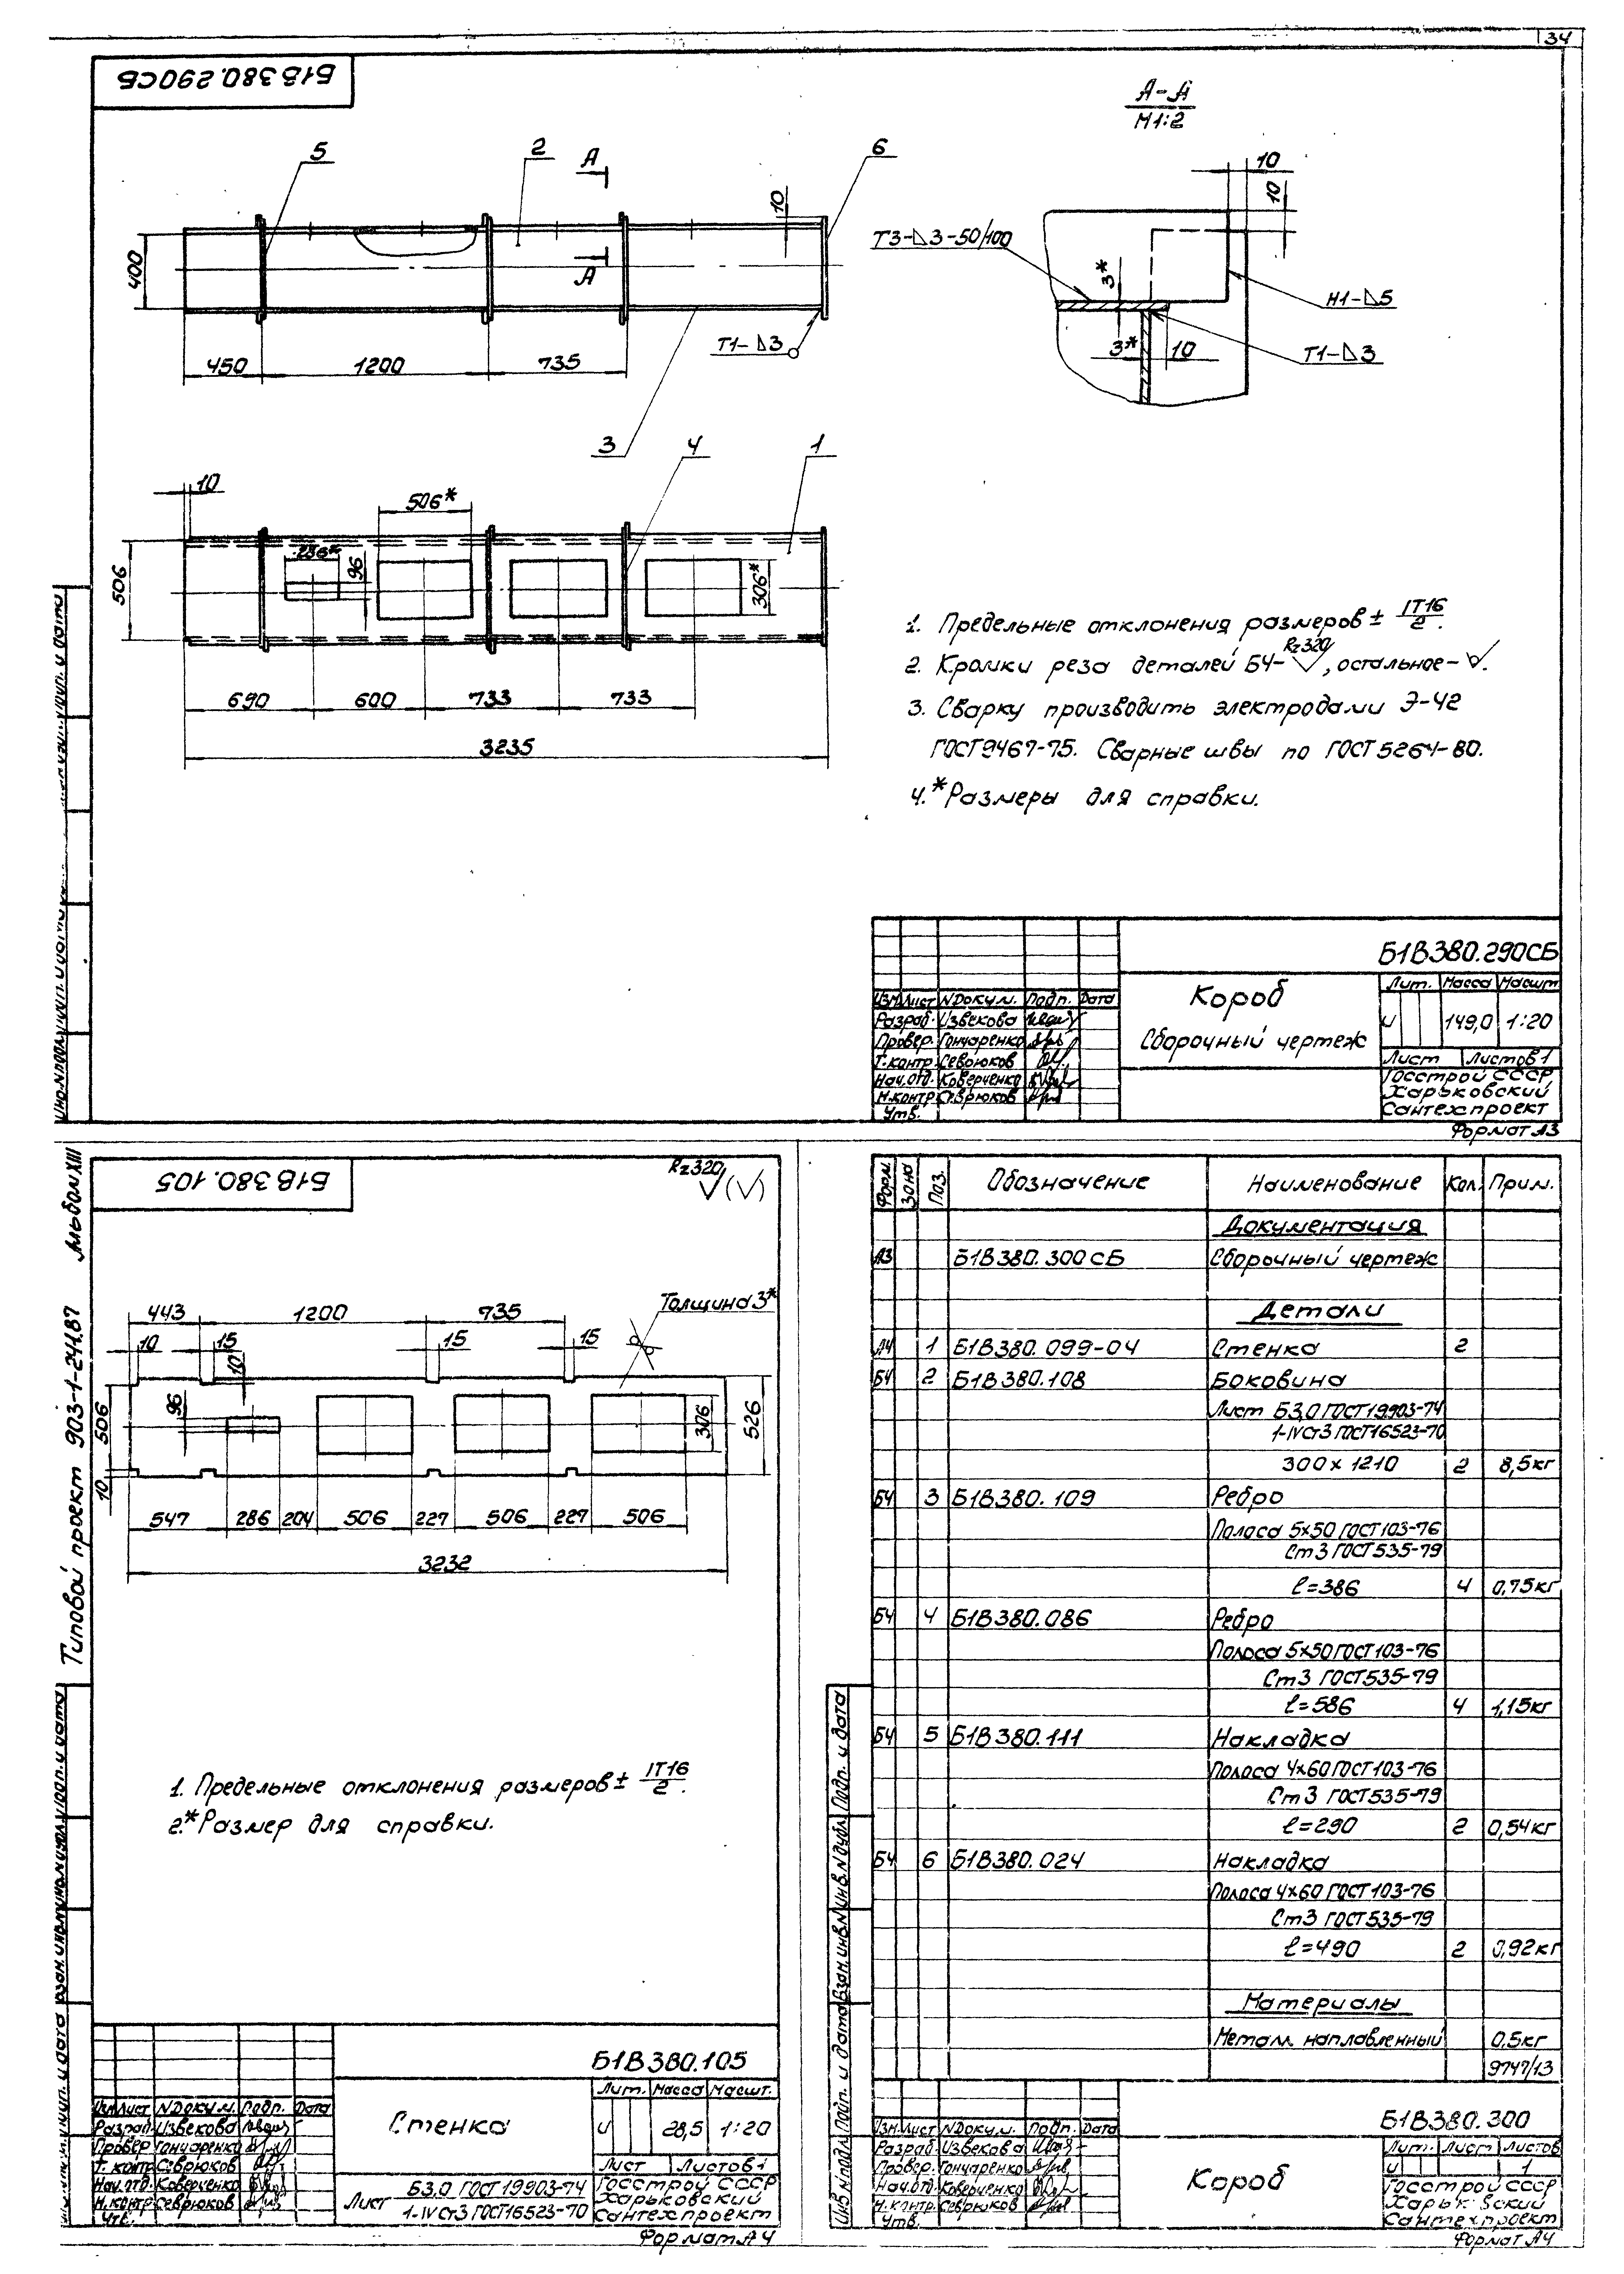 34
Б1В380.290СБ
А-А
М1:2
5
2
А
6
10
400
А
Т1-⊿3
450
1200
735
3
4
1
10
10
Т3-⊿3-50/100
3*
Н1-⊿5
3*
10
Т1-⊿3
10
506*
286*
96
506
306*
690
600
733
733
3235
1. Предельные отклонения размеров ± IT16/2.
2. Кромки реза деталей БЧ- Rz320, остальное-
3. Сварку производить электродами Э-42
ГОСТ 9467-75. Сварные швы по ГОСТ 5264-80.
4.* Размеры для справки.
Б1В380.290СБ
Изм. Лист N Докум. Подп. Дата
Разраб. Извекова
Провер. Гончаренко
Т.контр. Севрюков
Нач.отд. Коверченко
Н.контр. Севрюков
Утв.
Короб
Сборочный чертеж
Лит. Масса Масшт
И 149,0 1:20
Лист Листов 1
Госстрой СССР
Харьковский
Сантехпроект
Формат А3
Типовой проект 903-1-241.87 Альбом XIII
Б1В380.105
Rz320
443
1200
735
Толщина 3*
10
15
10
15
15
96
506
10
306
526
547
286
204
506
227
506
227
506
3232
1. Предельные отклонения размеров ± IT16/2.
2.* Размер для справки.
Б1В380.105
Изм. Лист N Докум. Подп. Дата
Разраб. Извекова
Провер. Гончаренко
Т.контр. Севрюков
Нач.отд. Коверченко
Н.контр. Севрюков
Утв.
Стенка
Лит. Масса Масшт.
И 28,5 1:20
Лист Листов 1
Лист Б3,0 ГОСТ 19903-74
1-IV Ст3 ГОСТ 16523-70
Госстрой СССР
Харьковский
Сантехпроект
Формат А4
Форм. Зона Поз. Обозначение Наименование Кол. Прим.
Документация
А3 Б1В380.300СБ Сборочный чертеж
Детали
А4 1 Б1В380.099-04 Стенка 2
БЧ 2 Б1В380.108 Боковина
Лист Б3,0 ГОСТ 19903-74
1-IV Ст3 ГОСТ 16523-70
300х1210 2 8,5кг
БЧ 3 Б1В380.109 Ребро
Полоса 5х50 ГОСТ 103-76
Ст3 ГОСТ 535-79
ℓ=386 4 0,75кг
БЧ 4 Б1В380.086 Ребро
Полоса 5х50 ГОСТ 103-76
Ст3 ГОСТ 535-79
ℓ=586 4 1,15кг
БЧ 5 Б1В380.111 Накладка
Полоса 4х60 ГОСТ 103-76
Ст3 ГОСТ 535-79
ℓ=290 2 0,54кг
БЧ 6 Б1В380.024 Накладка
Полоса 4х60 ГОСТ 103-76
Ст3 ГОСТ 535-79
ℓ=490 2 0,92кг
Материалы
Металл наплавленный 0,5кг
9747/13
Б1В380.300
Изм. Лист N Докум. Подп. Дата
Разраб. Извекова
Провер. Гончаренко
Нач.отд. Коверченко
Н.контр. Севрюков
Утв.
Короб
Лит. Лист Листов
И 1
Госстрой СССР
Харьковский
Сантехпроект
Формат А4
Инв.N подл. Подп. и дата Взам.инв.N Инв.N дубл. Подп. и дата